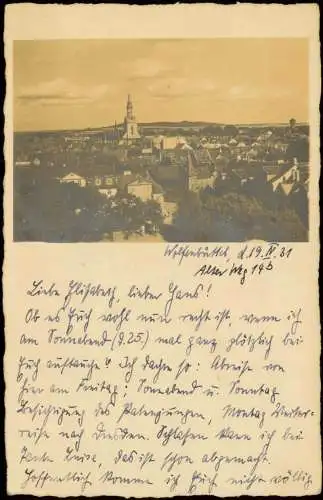 Wolfenbüttel, d. 19. IV. 31
Alter Weg 19b
Liebe Elisabeth, lieber Hans!
Ob es Euch wohl nun recht ist, wenn ich
am Sonnabend (d. 25.) mal ganz plötzlich bei
Euch auftauche? Ich dachte so: Abreise von
hier am Freitag! Sonnabend u. Sonntag
Besichtigung des Patenjungen, Montag Weiter-
reise nach Dresden. Schlafen kann ich bei
Tante Luise, das ist schon abgemacht.
Hoffentlich komme ich Euch nicht völlig